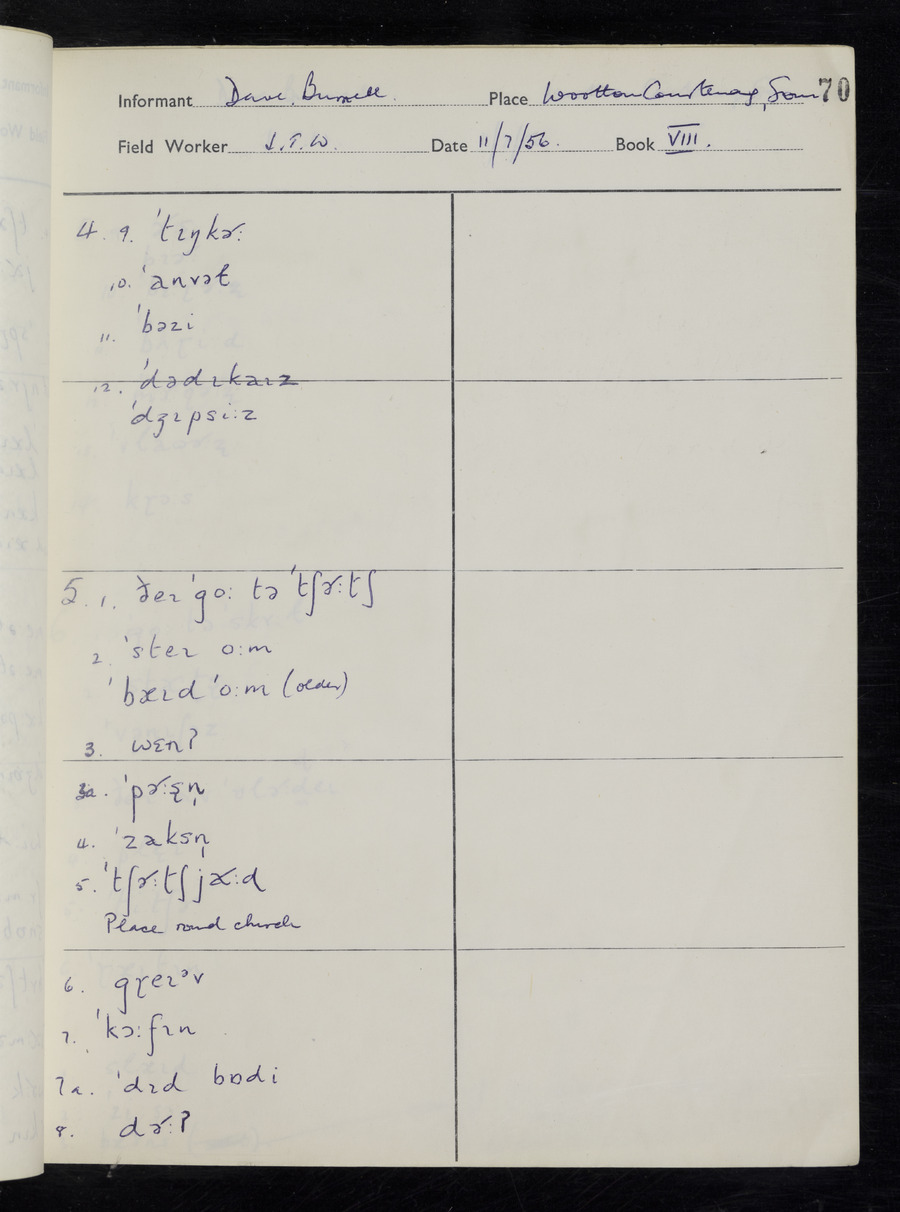 Informant Dave. Place Wootton Courtenay, Som 70
Field Worker J.T.W. Date 11/7/56. Book VIII.
4. 9. ˈtɪŋkɚ:
10. ˈanvəɫ
11. ˈbəzi
12. ˈdədɪkaɪz
ˈdʒɪpsi:z
5. 1. ðeɪ ˈgo: tə ˈtʃɚ:tʃ
2. ˈsteɪ o:m
ˈbæɪd ˈo:m (older)
3. wɛn?
3a. ˈpɚ:sn̩
4. ˈzaksn̩
5. ˈtʃɚ:tʃ jɚ:d
Place round church
6. gɽeɪᵊv
7. ˈkɔ:fɪn
7a. ˈdɪd bɒdi
8. dɚ:?